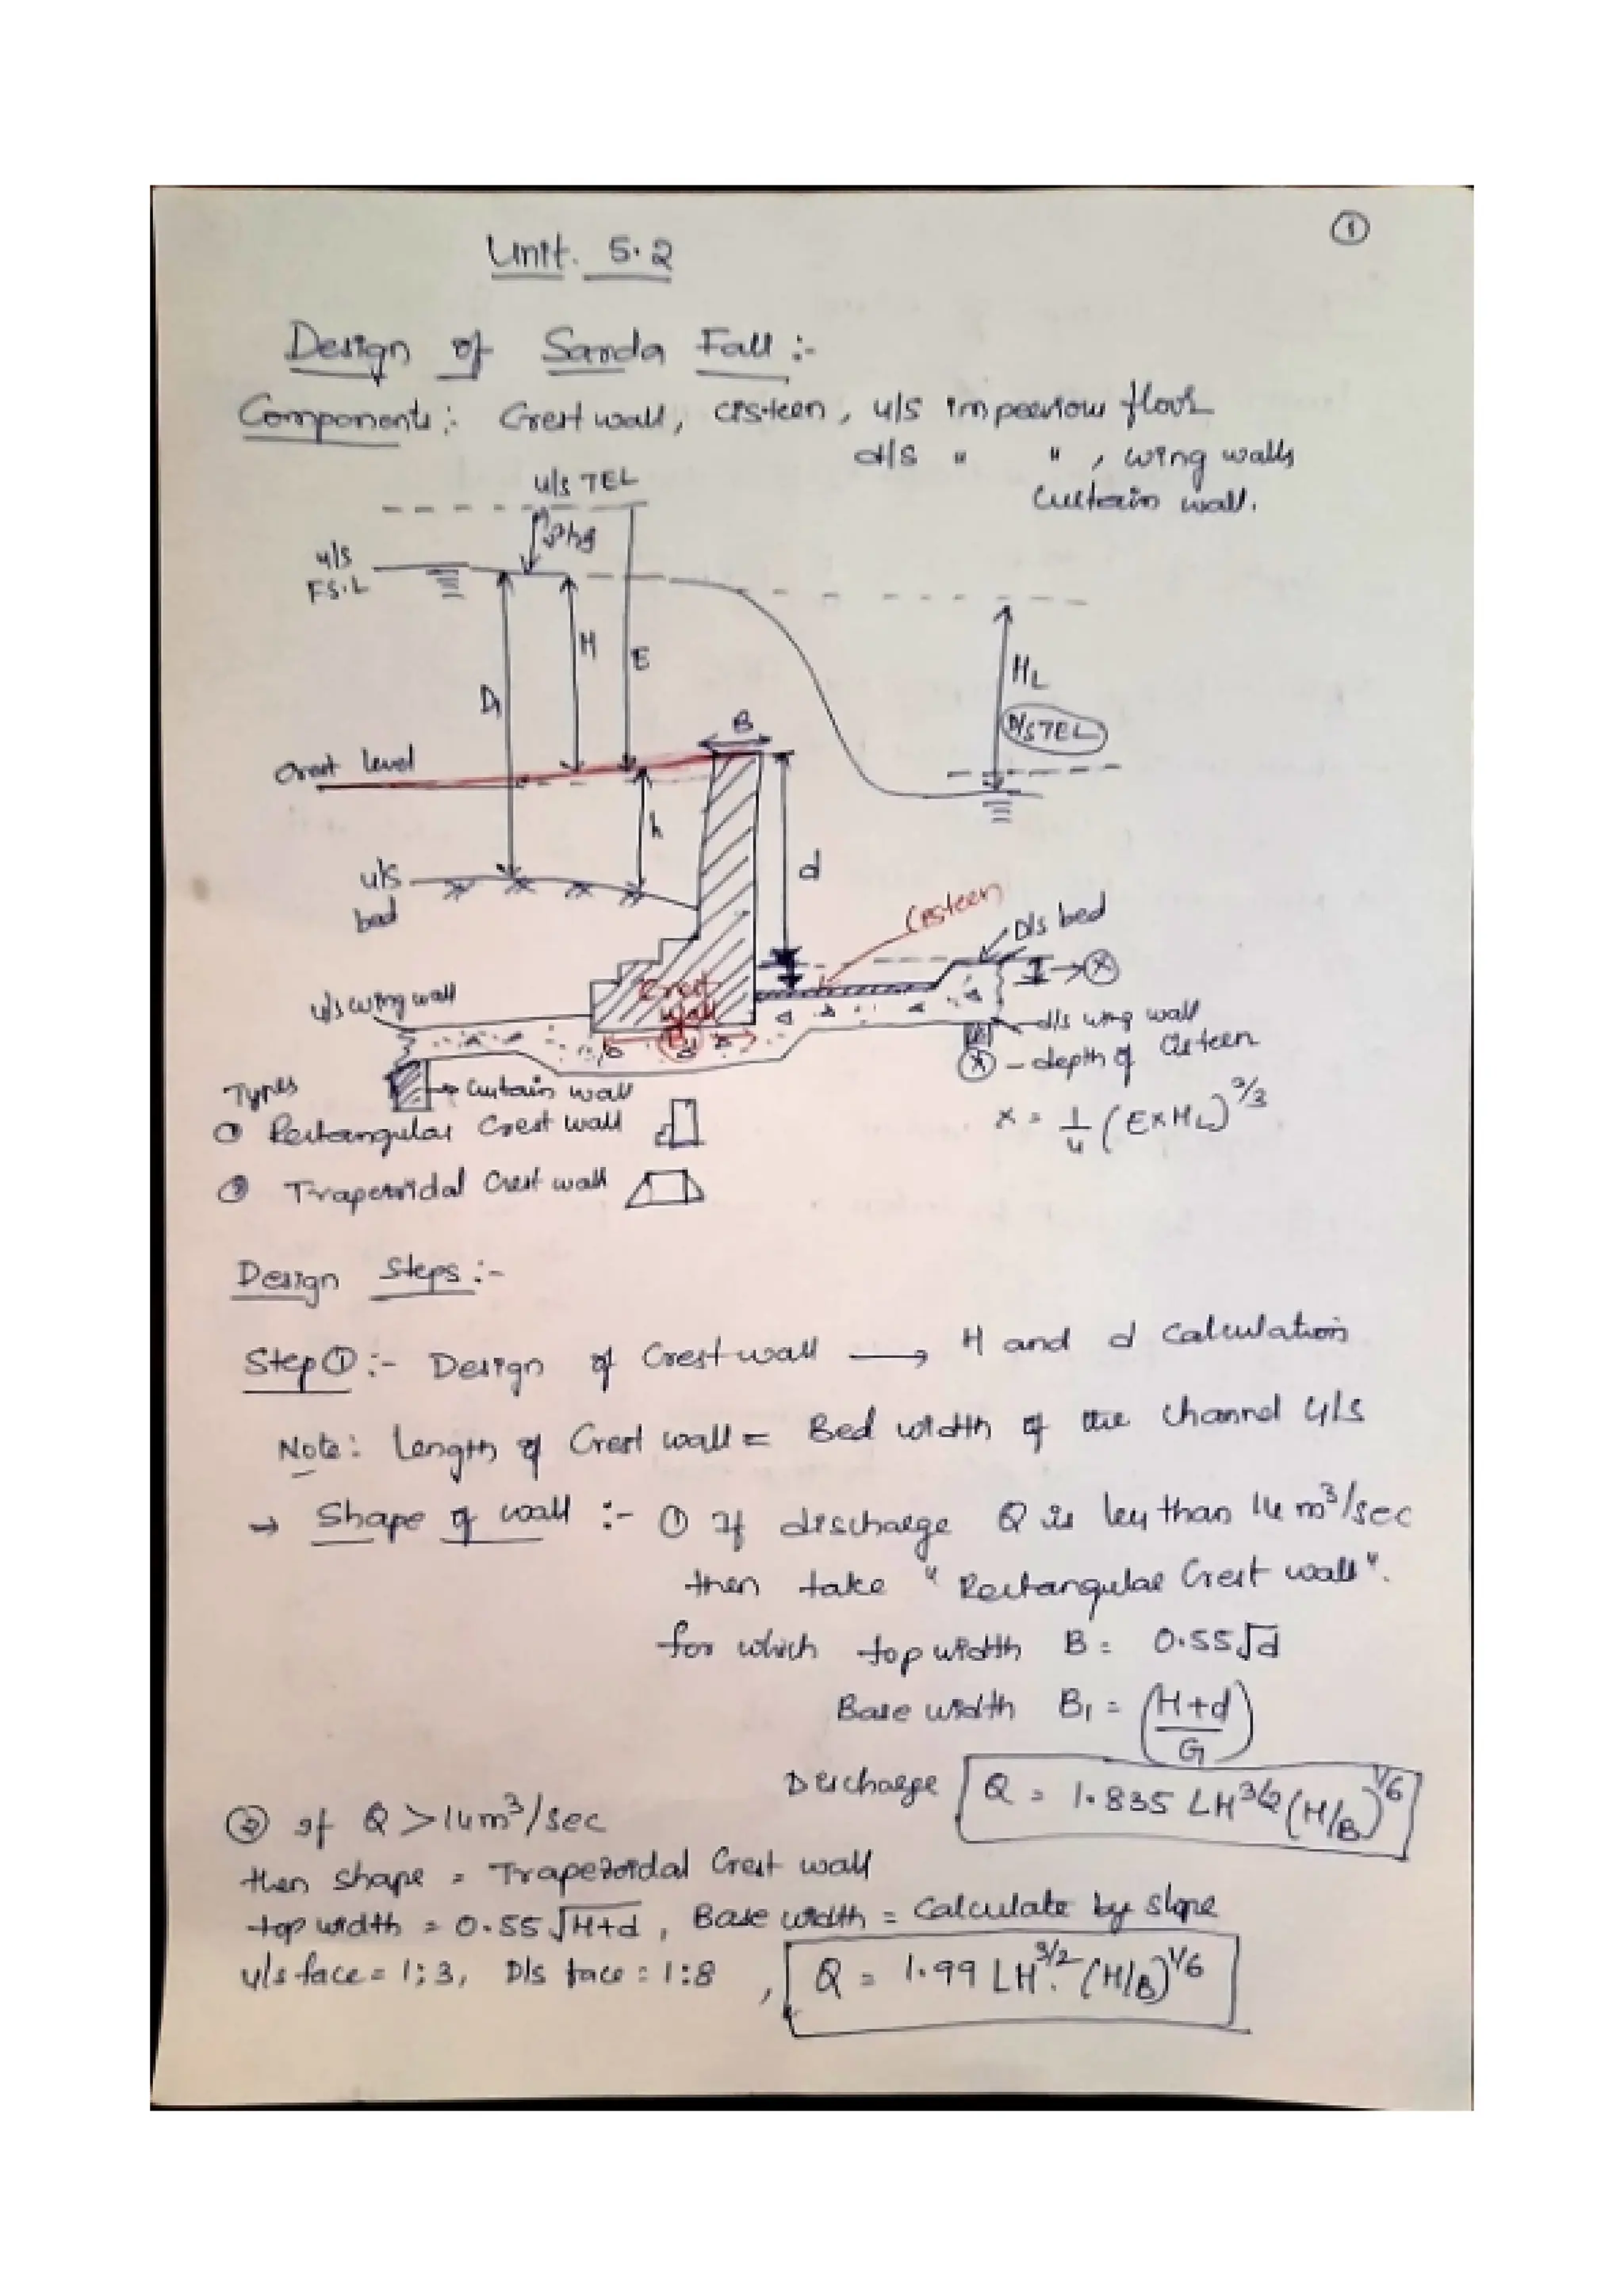 ①
Unit. 5.2
Design of Sarda Fall :-
Components :- Crest wall, cisteen, u/s impervious floor
d/s " " , wing walls
Curtain wall.
u/s TEL
hg
u/s
F.S.L
H
E
D1
HL
D/S TEL
B
Crest level
h
d
u/s
bed
Cisteen
D/s bed
→ ⓧ
u/s wing wall
Crest
wall
B
d/s wing wall
ⓧ - depth of Cisteen
x = 1/4 (E×HL)^2/3
Curtain wall
Types
① Rectangular Crest wall
② Trapezoidal Crest wall
Design Steps :-
Step ① :- Design of Crest wall → H and d Calculation
Note: Length of Crest wall = Bed width of the channel u/s
→ Shape of wall :- ① If discharge Q is less than 14 m³/sec
then take "Rectangular Crest wall".
for which top width B = 0.55√d
Base width B1 = (H+d / G)
Discharge Q = 1.835 LH^3/2 (H/B)^1/6
② if Q > 14 m³/sec
then shape = Trapezoidal Crest wall
top width = 0.55 √H+d , Base width = Calculate by slope
u/s face = 1:3, D/s face = 1:8 , Q = 1.99 LH^3/2 (H/B)^1/6